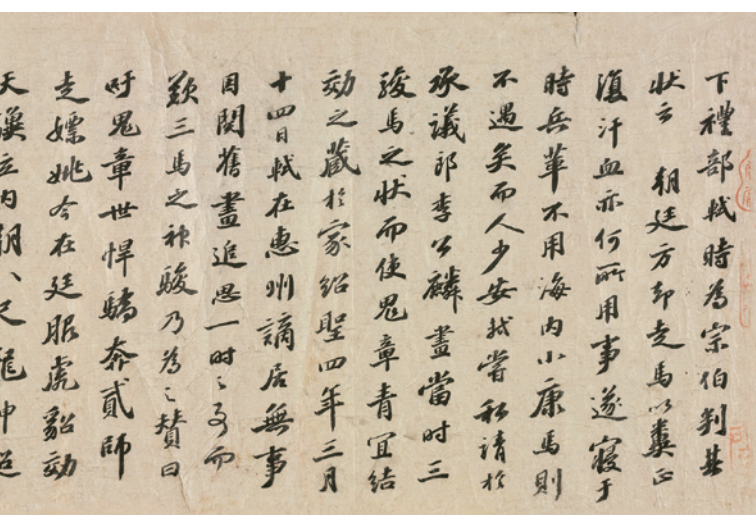 下禮部軾時為宗伯判其
狀云 朝廷方却走馬以糞正
復汗血亦何所用事遂寢于
時兵革不用海內小康馬則
不遇矣而人少安軾嘗私請於
承議郎李公麟畫當時三
駿馬之狀而使鬼章青宜結
効之藏於家紹聖四年三月
十四日軾在惠州謫居無事
因閱舊畫追思一時之事而
歎三馬之神駿乃為之贊曰
吁鬼章世悍驕奔貳師
走嫖姚今在廷服虎貂効
天驥立內朝八尺龍神超